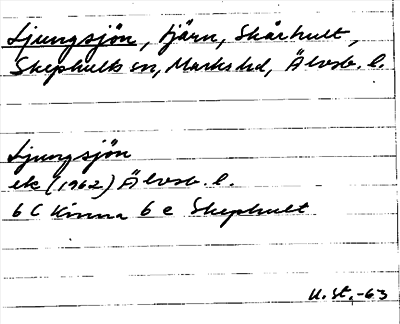 Ljungsjön, tjärn, Skårhult,
Skephults sn, Marks hd, Älvsb. l.
Ljungsjön
ek (1962) Älvsb. l.
6 C Kinna 6 e Skephult
U. St. -63